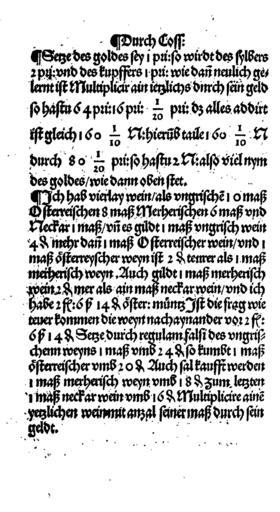 ¶Durch Coss:
¶Setze des goldes sey 1 pri: so wirdt des sylbers
2 pri: vnd des kupffers 1 pri: wie dañ neulich ge
lernt ist Multiplicir ain ietzlichs durch sein geld
so hastu 64 pri: 16 pri: 1/20 pri: dz alles addirt
ist gleich 160 1/10 N: hierüb taile 160 1/10 N:
durch 80 1/20 pri: so hastu 2 N: also viel nym
des goldes/ wie dann oben stet.
¶Ich hab vierlay wein/ als vngrischē 10 maß
Osterreischen 8 maß Merherischen 6 maß vnd
Neckar 1 maß/ vñ es gildt 1 maß vngrisch wein
4 ₰ mehr dañ 1 maß Osterreischer wein/ vnd 1
maß östereyscher weyn ist 2 ₰ teurer als 1 maß
merherisch weyn. Auch gildt 1 maß merherisch
wein 2 ₰ mer als ain maß neckar wein/ vnd ich
habe 2 fl: 6 ß 14 ₰ öster: müntz Ist die frag wie
teuer kommen die weyn nachaynander vor 2 fl:
6 ß 14 ₰ Setze durch regulam falsi des vngris-
chenn weyns 1 maß vmb 24 ₰ so kumbt 1 maß
österreischer vmb 20 ₰ Auch sal kaufft werden
1 maß merherisch weyn vmb 18 ₰ zum letzten
1 maß neckar wein vmb 16 ₰ Multiplicire ainē
yetzlichen wein mit anzal seiner maß durch sein
geldt.